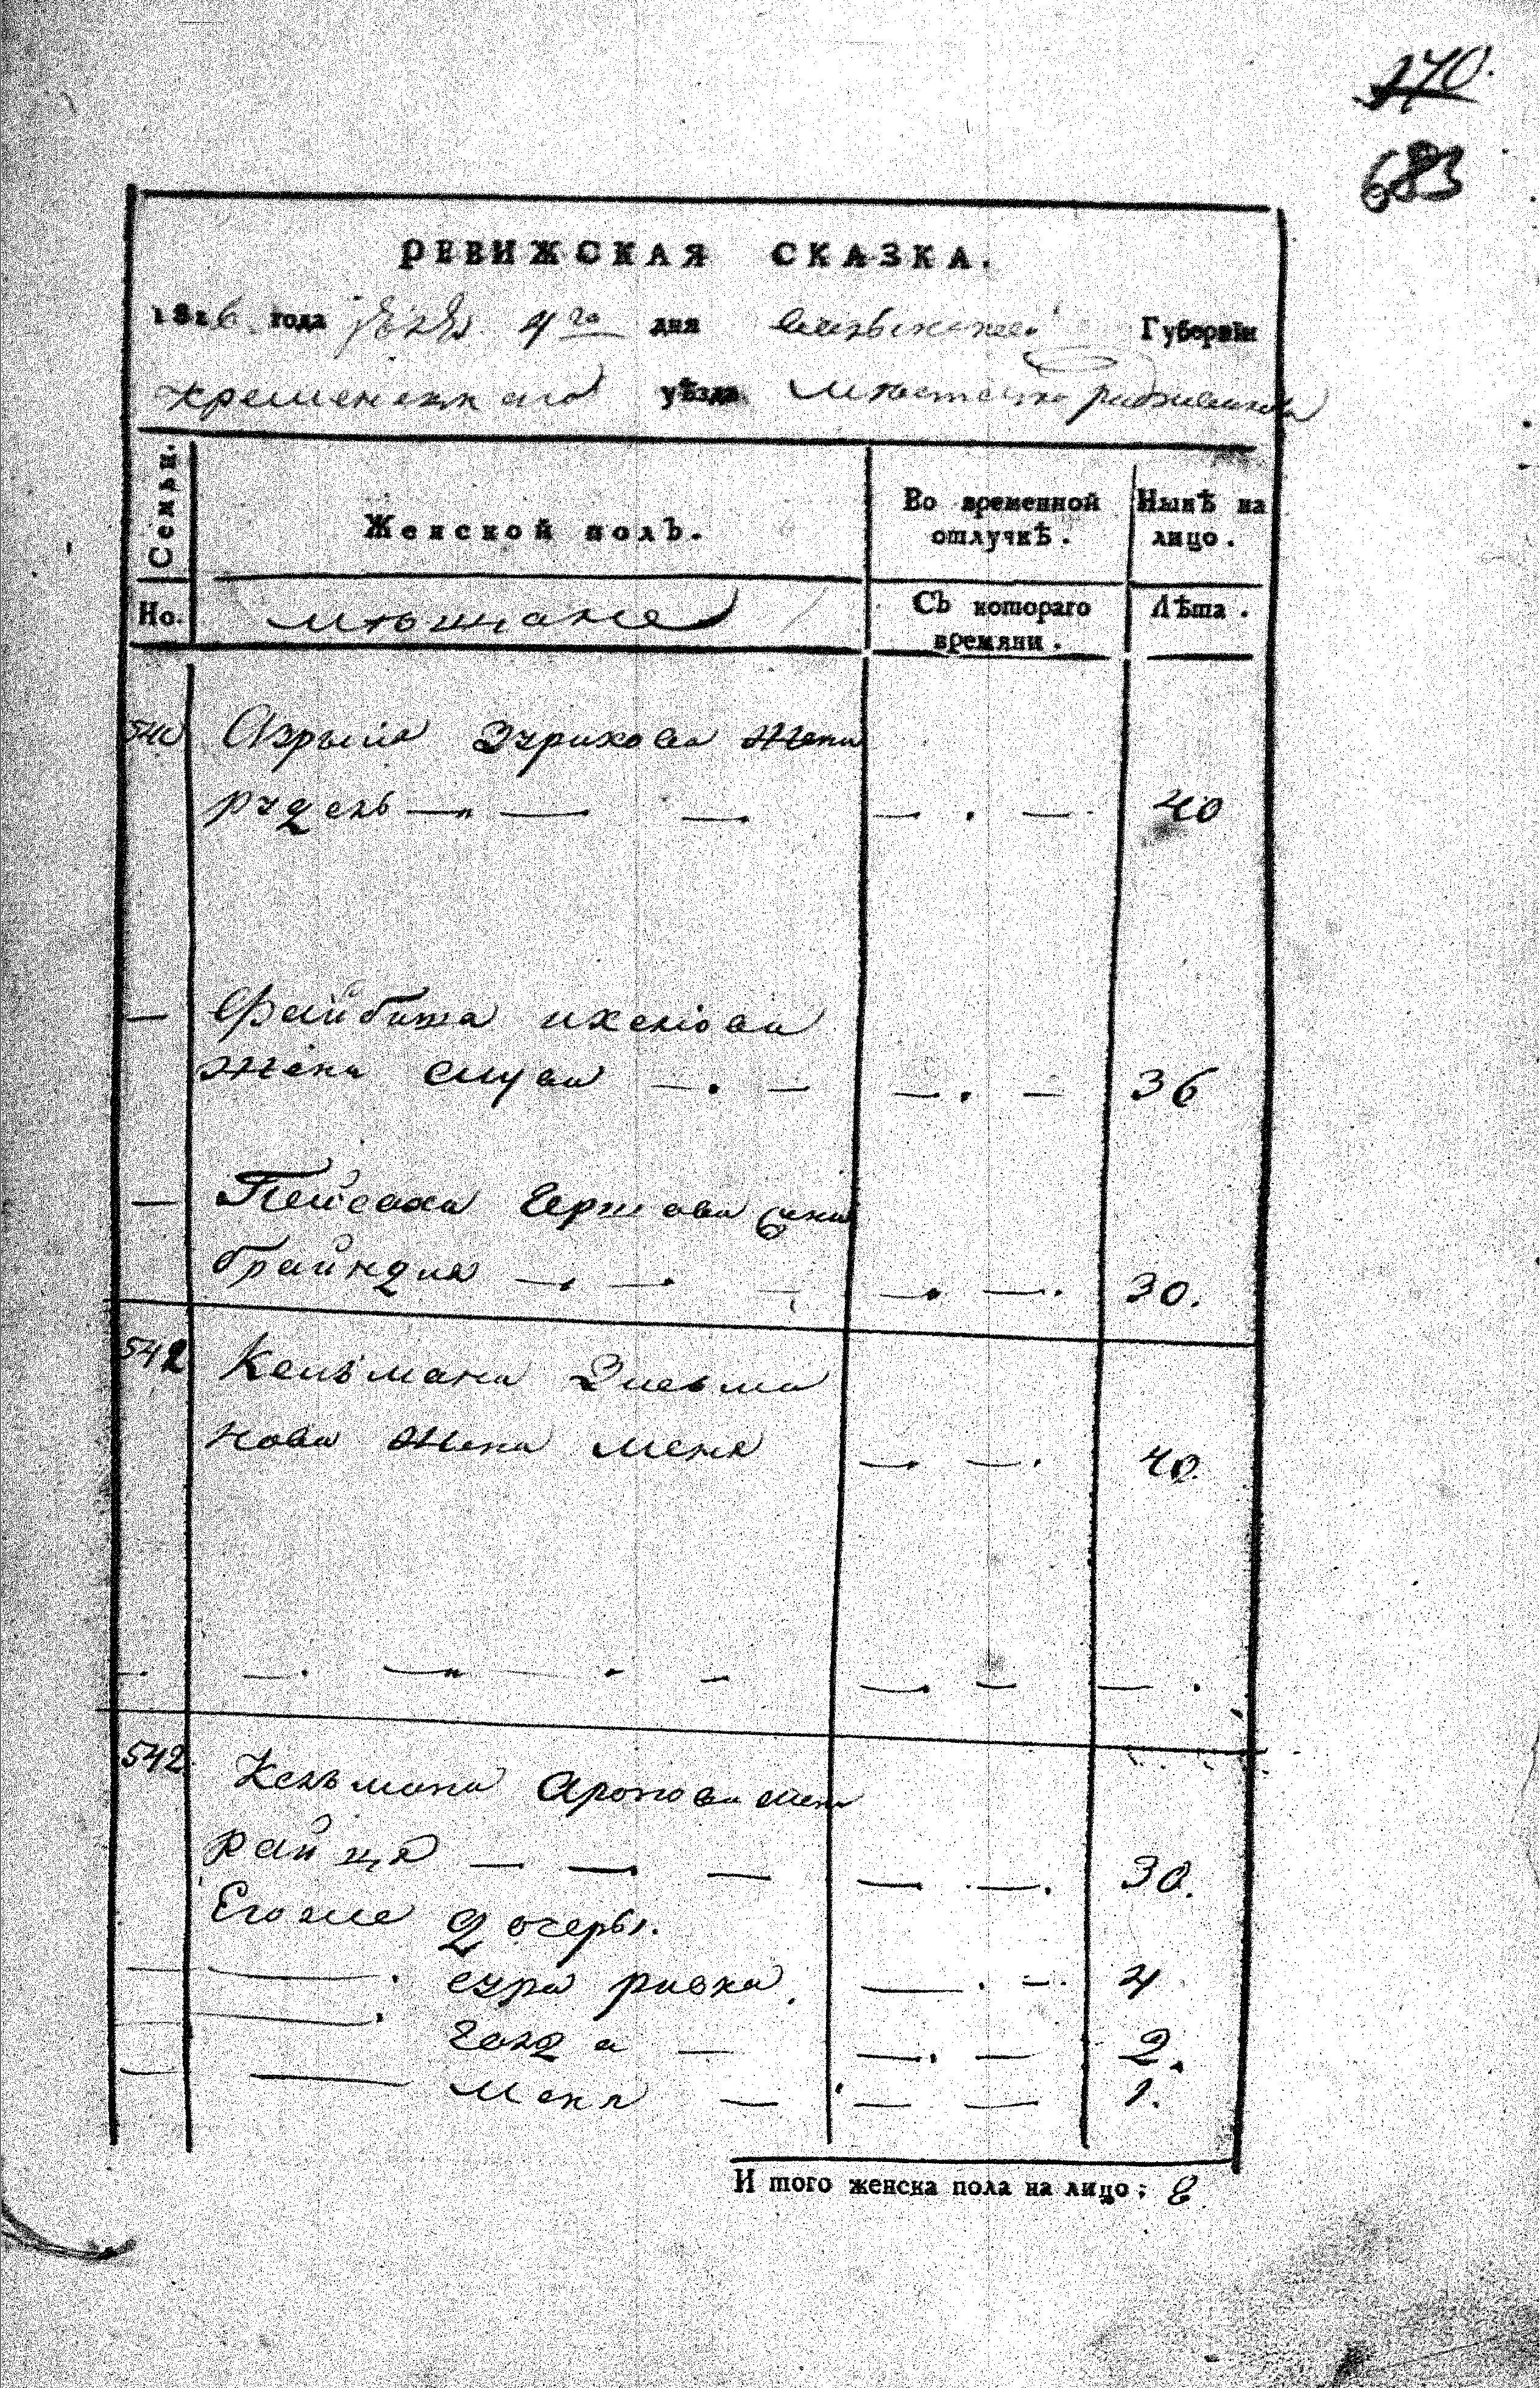 270.
683
РЕВИЖСКАЯ СКАЗКА.
1816 года 4го дня Волынской Губерніи
кременецкаго уѣзда мѣстечка радзивилова
Семьи.
Женской полъ.
Во временной отлучкѣ.
Нынѣ на лицо.
Но.
мѣщане
Съ котораго времяни.
Лѣта.
540 Азрыла жена
рудель — — — — . — 40
— Файбиша ихелюва
жена — . — — . — 36
— Пейсаха Гершова жена
брайндля — — — — . — . 30.
542 Кельмана Зисьма
нова жена меня — . — . 40.
— . — . — — . — — . — — .
542 Кельмана Аронова жена
райця — . — . — — . — . 30.
Его же дочеры.
— — . сура ривка. — . — . 4
— . голда — — . — 2.
— — меня — — — 1.
И того женска пола на лицо; 8